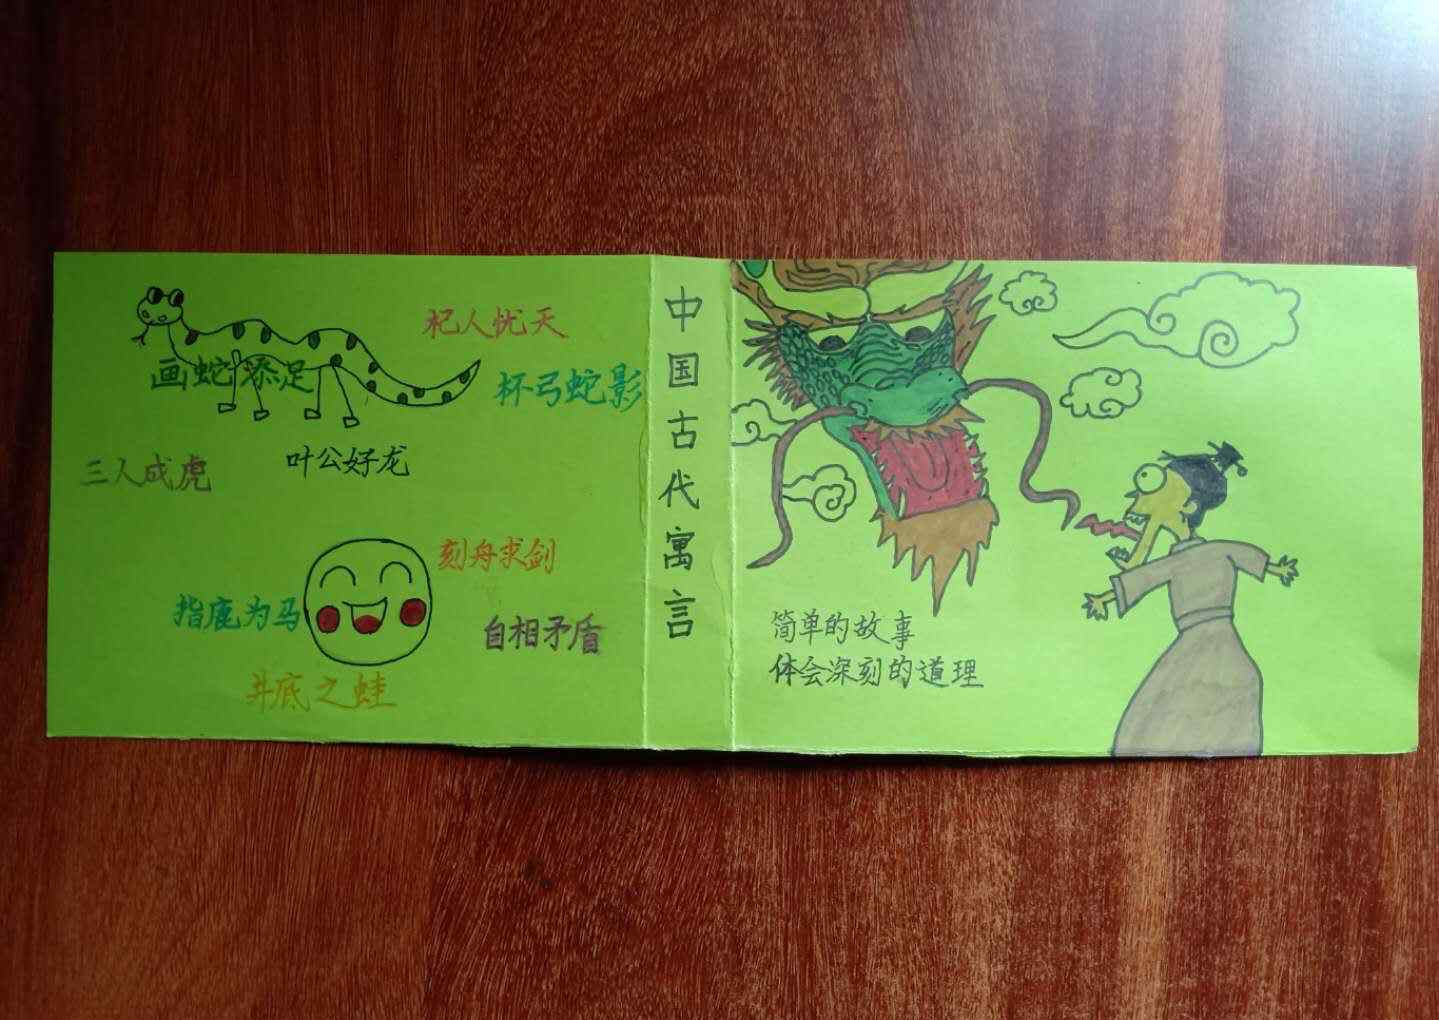 杞人忧天
画蛇添足
杯弓蛇影
三人成虎
叶公好龙
刻舟求剑
指鹿为马
自相矛盾
井底之蛙
中国古代寓言
简单的故事
体会深刻的道理